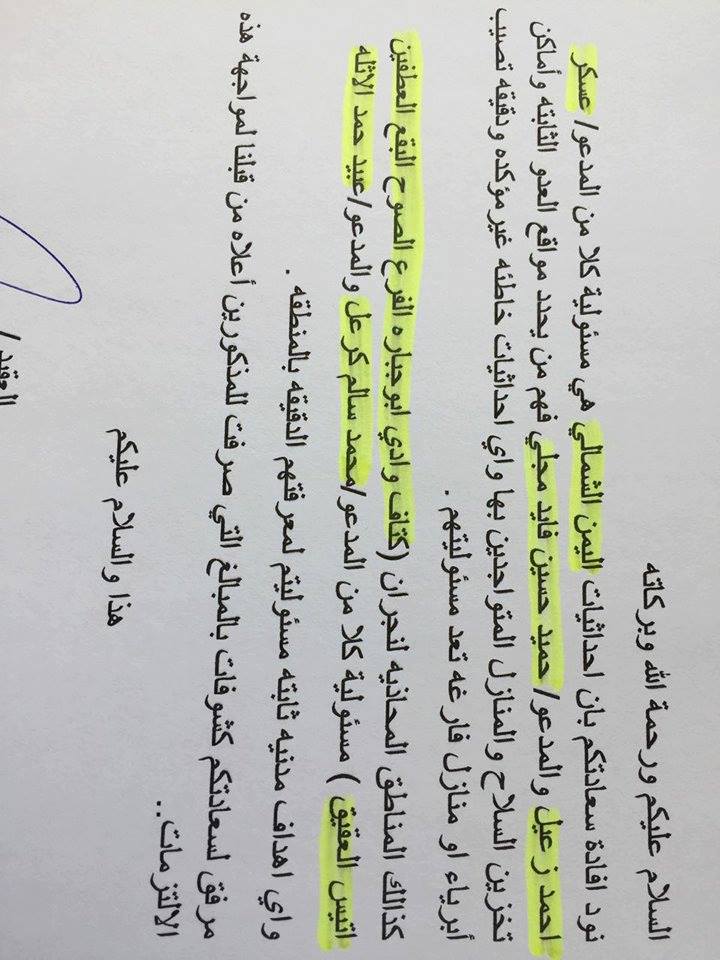 السلام عليكم ورحمة الله وبركاته
نود افادة سعادتكم بان احداثيات اليمن الشمالي هي مسئولية كلا من المدعو/ عسكر
احمد زعيل والمدعو/ حميد حسين فايد مجلي فهم من يحدد مواقع العدو الثابته وأماكن
تخزين السلاح والمنازل المتواجدين بها واي احداثيات خاطئه غير مؤكده ودقيقه تصيب
أبرياء او منازل فارغه تعد مسئوليتهم .
كذالك المناطق المحاذيه لنجران (كتاف وادي ابوجباره الفرع الصوح البقع العطفين
اتيس العقيق ) مسئولية كلا من المدعو/محمد سالم كرعل والمدعو/عبيد حمد الاثله
واي اهداف مدنيه ثابته مسئوليتم لمعرفتهم الدقيقه بالمنطقه .
مرفق لسعادتكم كشوفات بالمبالغ التي صرفت للمذكورين أعلاه من قبلنا لمواجهة هذه
الالتزمات..
هذا والسلام عليكم
العقيد /